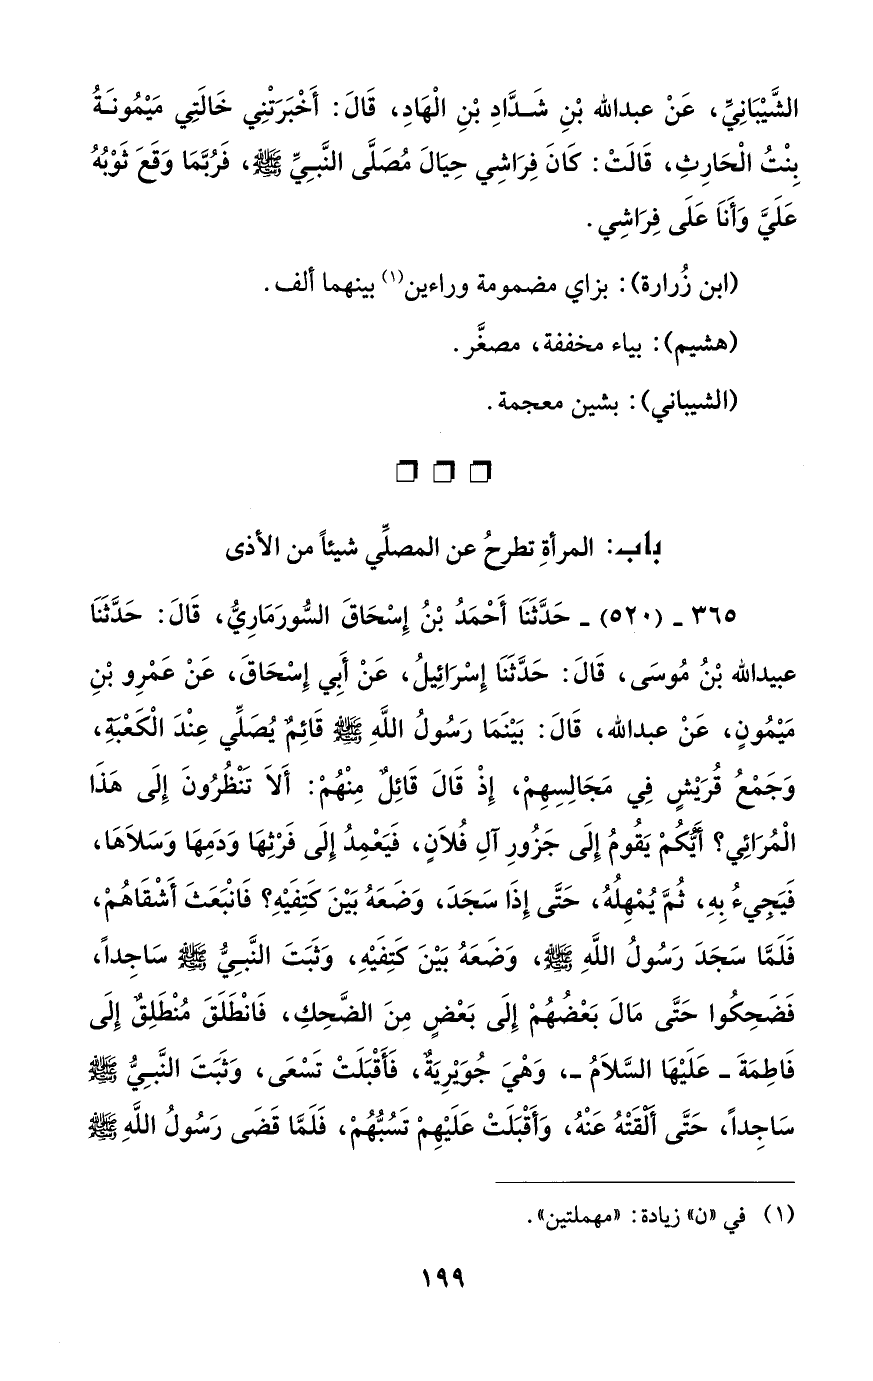 الشَّيْبَانِيِّ، عَنْ عبدالله بْنِ شَـدَّادِ بْنِ الْهَادِ، قَالَ: أَخْبَرَتْنِي خَالَتِي مَيْمُونَـةُ
بِنْتُ الْحَارِثِ، قَالَتْ: كَانَ فِرَاشِي حِيَالَ مُصَلَّى النَّبِـيِّ ﷺ، فَرُبَّمَا وَقَعَ ثَوْبُهُ
عَلَيَّ وَأَنَا عَلَى فِرَاشِي.
(ابن زُرارة): بزاي مضمومة وراءين(١) بينهما ألف.
(هشيم): بياء مخففة، مصغَّر.
(الشيباني): بشين معجمة.
باب: المرأةِ تطرحُ عن المصلِّي شيئاً من الأذى
٣٦٥ - (٥٢٠) - حَدَّثَنَا أَحْمَدُ بْنُ إِسْحَاقَ السُّورَمَارِيُّ، قَالَ: حَدَّثَنَا
عبيدالله بْنُ مُوسَى، قَالَ: حَدَّثَنَا إِسْرَائِيلُ، عَنْ أَبِي إِسْحَاقَ، عَنْ عَمْرِو بْنِ
مَيْمُونٍ، عَنْ عبدالله، قَالَ: بَيْنَمَا رَسُولُ اللَّهِ ﷺ قَائِمٌ يُصَلِّي عِنْدَ الْكَعْبَةِ،
وَجَمْعُ قُرَيْشٍ فِي مَجَالِسِهِمْ، إِذْ قَالَ قَائِلٌ مِنْهُمْ: أَلاَ تَنْظُرُونَ إِلَى هَذَا
الْمُرَائِي؟ أَيُّكُمْ يَقُومُ إِلَى جَزُورِ آلِ فُلاَنٍ، فَيَعْمِدُ إِلَى فَرْثِهَا وَدَمِهَا وَسَلاَهَا،
فَيَجِيءُ بِهِ، ثُمَّ يُمْهِلُهُ، حَتَّى إِذَا سَجَدَ، وَضَعَهُ بَيْنَ كَتِفَيْهِ؟ فَانْبَعَثَ أَشْقَاهُمْ،
فَلَمَّا سَجَدَ رَسُولُ اللَّهِ ﷺ، وَضَعَهُ بَيْنَ كَتِفَيْهِ، وَثَبَتَ النَّبِـيُّ ﷺ سَاجِداً،
فَضَحِكُوا حَتَّى مَالَ بَعْضُهُمْ إِلَى بَعْضٍ مِنَ الضَّحِكِ، فَانْطَلَقَ مُنْطَلِقٌ إِلَى
فَاطِمَةَ - عَلَيْهَا السَّلاَمُ -، وَهْيَ جُوَيْرِيَةٌ، فَأَقْبَلَتْ تَسْعَى، وَثَبَتَ النَّبِـيُّ ﷺ
سَاجِداً، حَتَّى أَلْقَتْهُ عَنْهُ، وَأَقْبَلَتْ عَلَيْهِمْ تَسُبُّهُمْ، فَلَمَّا قَضَى رَسُولُ اللَّهِ ﷺ
(١) في «ن» زيادة: «مهملتين».
١٩٩